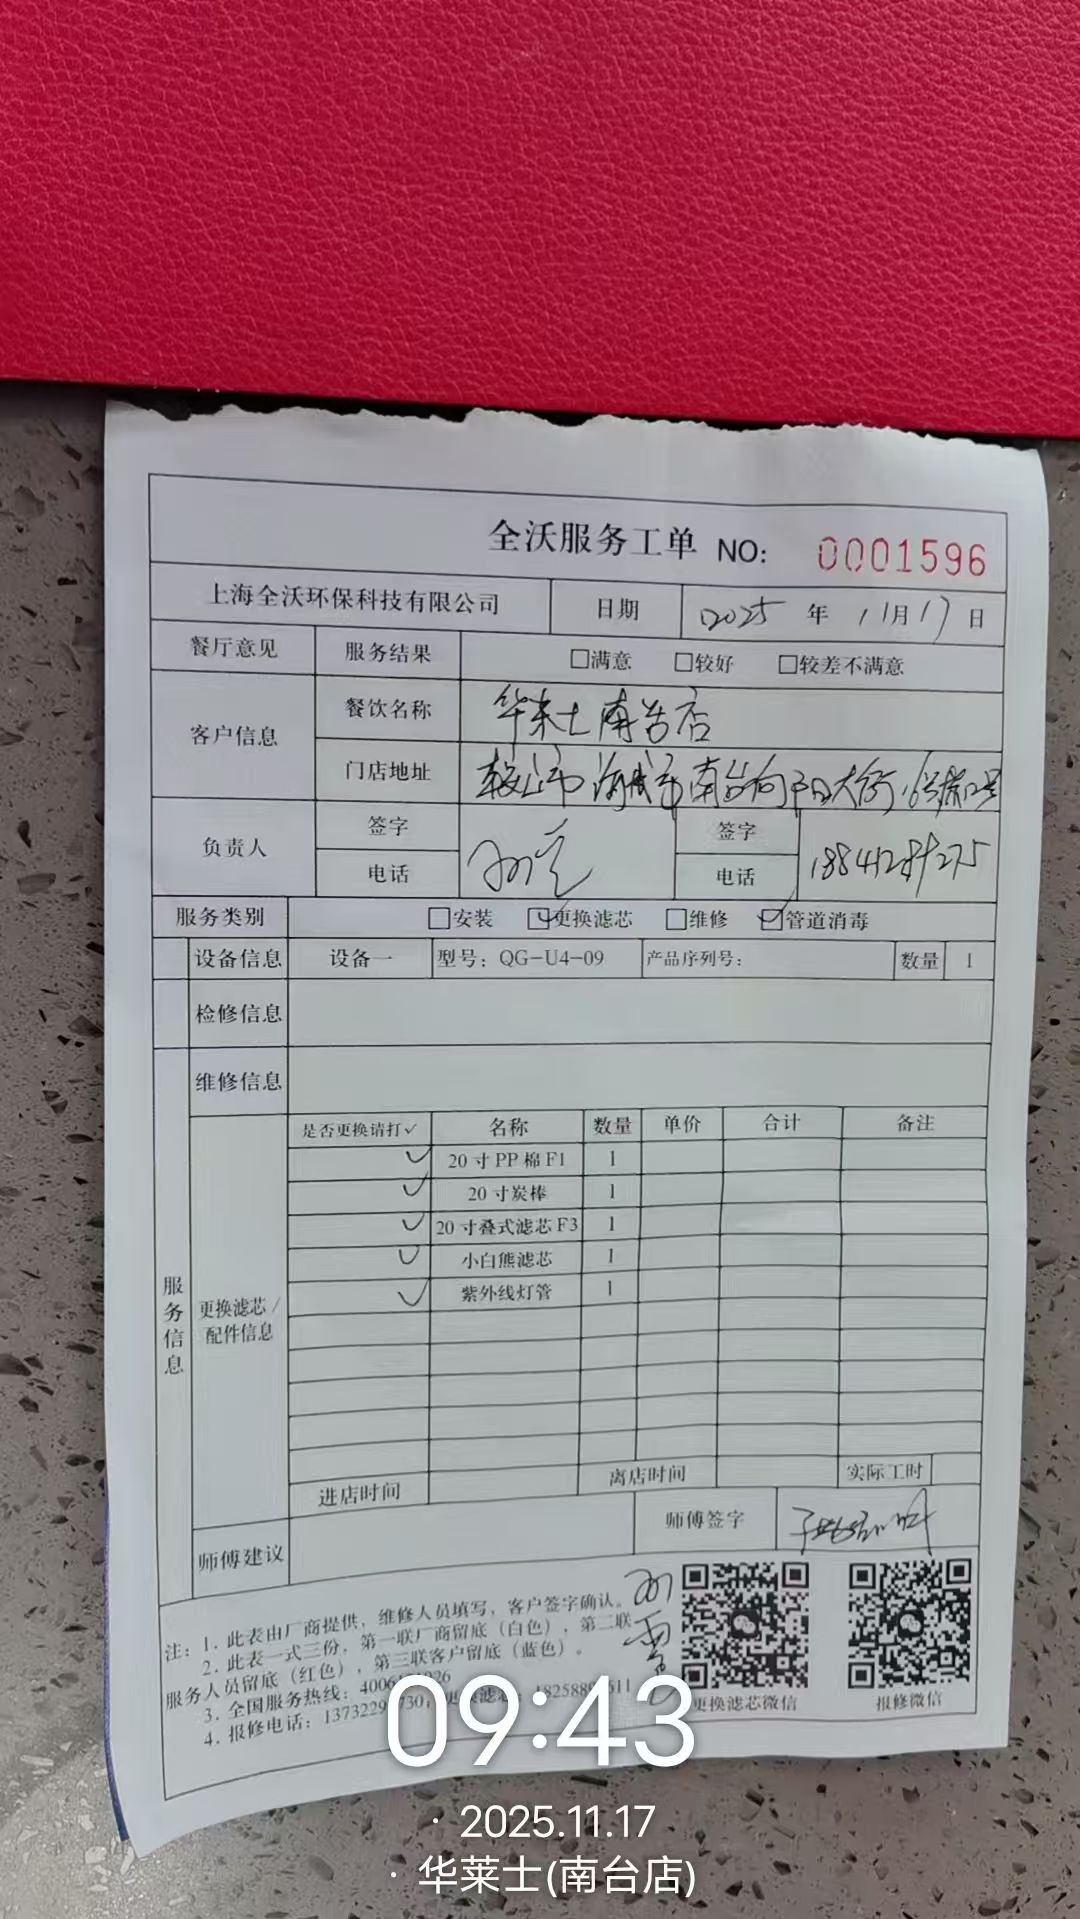 全沃服务工单 NO: 0001596
上海全沃环保科技有限公司 日期 2025 年 11月17日
餐厅意见 服务结果 □满意 □较好 □较差不满意
客户信息 餐饮名称 华莱士南台店
门店地址 鞍山市海城市南台向阳大街
负责人 签字 签字
电话 电话
服务类别 □安装 ☑更换滤芯 □维修 ☑管道消毒
设备信息 设备一 型号：QG-U4-09 产品序列号： 数量 1
检修信息
维修信息
服务信息
更换滤芯/
配件信息
是否更换请打✓ 名称 数量 单价 合计 备注
✓ 20寸PP棉F1 1
✓ 20寸炭棒 1
✓ 20寸叠式滤芯F3 1
✓ 小白熊滤芯 1
✓ 紫外线灯管 1
进店时间 离店时间 实际工时
师傅建议 师傅签字
注：1. 此表由厂商提供，维修人员填写，客户签字确认。
2. 此表一式三份，第一联厂商留底（白色），第二联
服务人员留底（红色），第三联客户留底（蓝色）。
3. 全国服务热线：
4. 报修电话：
更换滤芯微信 报修微信
09:43
· 2025.11.17
· 华莱士(南台店)